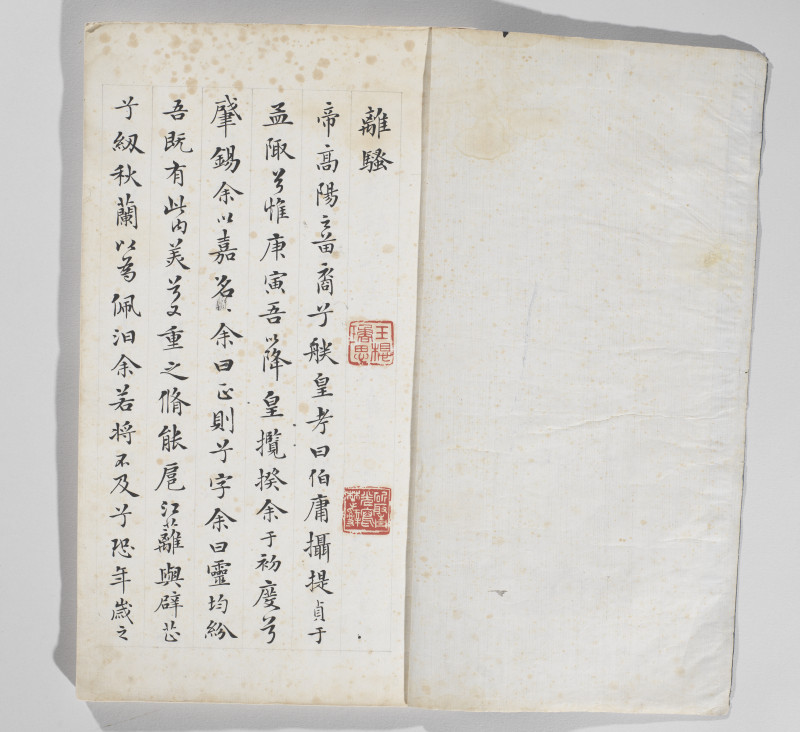 離騷
帝高陽之苗裔兮朕皇考曰伯庸攝提貞于
孟陬兮惟庚寅吾以降皇攬揆余于初度兮
肇錫余以嘉名余曰正則兮字余曰靈均紛
吾既有此内美兮又重之脩能扈江蘺與辟芷
兮紉秋蘭以為佩汨余若將不及兮恐年歲之